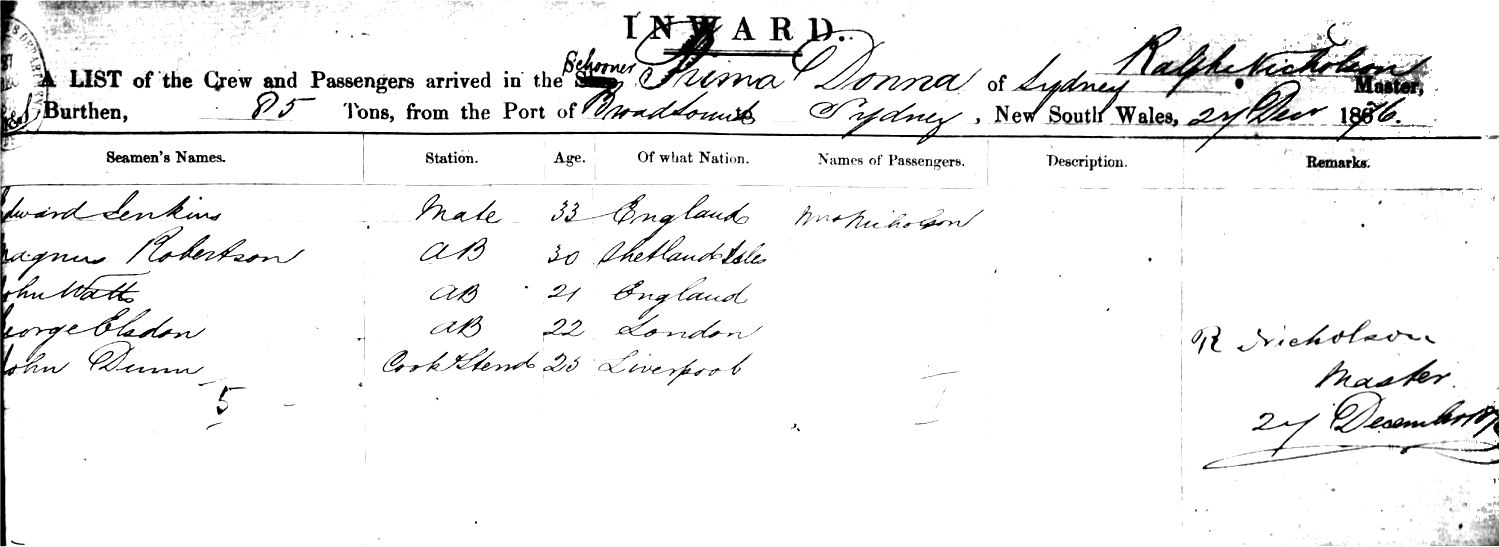 INWARD.
A LIST of the Crew and Passengers arrived in the Schooner Prima Donna of Sydney Ralph Nicholson Master,
Burthen, 85 Tons, from the Port of Broadsound Sydney, New South Wales, 27 Decr 1876.
Seamen's Names. Station. Age. Of what Nation. Names of Passengers. Description. Remarks.
dward Jenkins Mate 33 England Mrs Nicholson
agnus Robertson AB 30 Shetland Isles
ohn Watts AB 21 England
eorge Elsdon AB 22 London
R Nicholson
ohn Dunn Cook & Stewd 25 Liverpool
Master
5 I
27 December 187